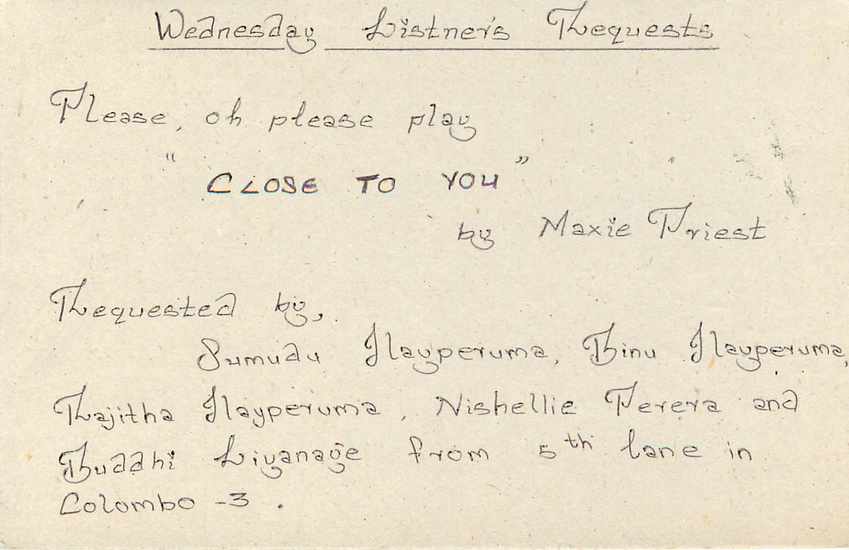 Wednesday Listner's Requests
Please, oh please play
"CLOSE TO YOU"
by Maxie Priest
Requested by,
Sumudu Ilayperuma, Binu Ilayperuma,
Rajitha Ilayperuma, Nishellie Perera and
Buddhi Liyanage from 5th lane in
Colombo -3.